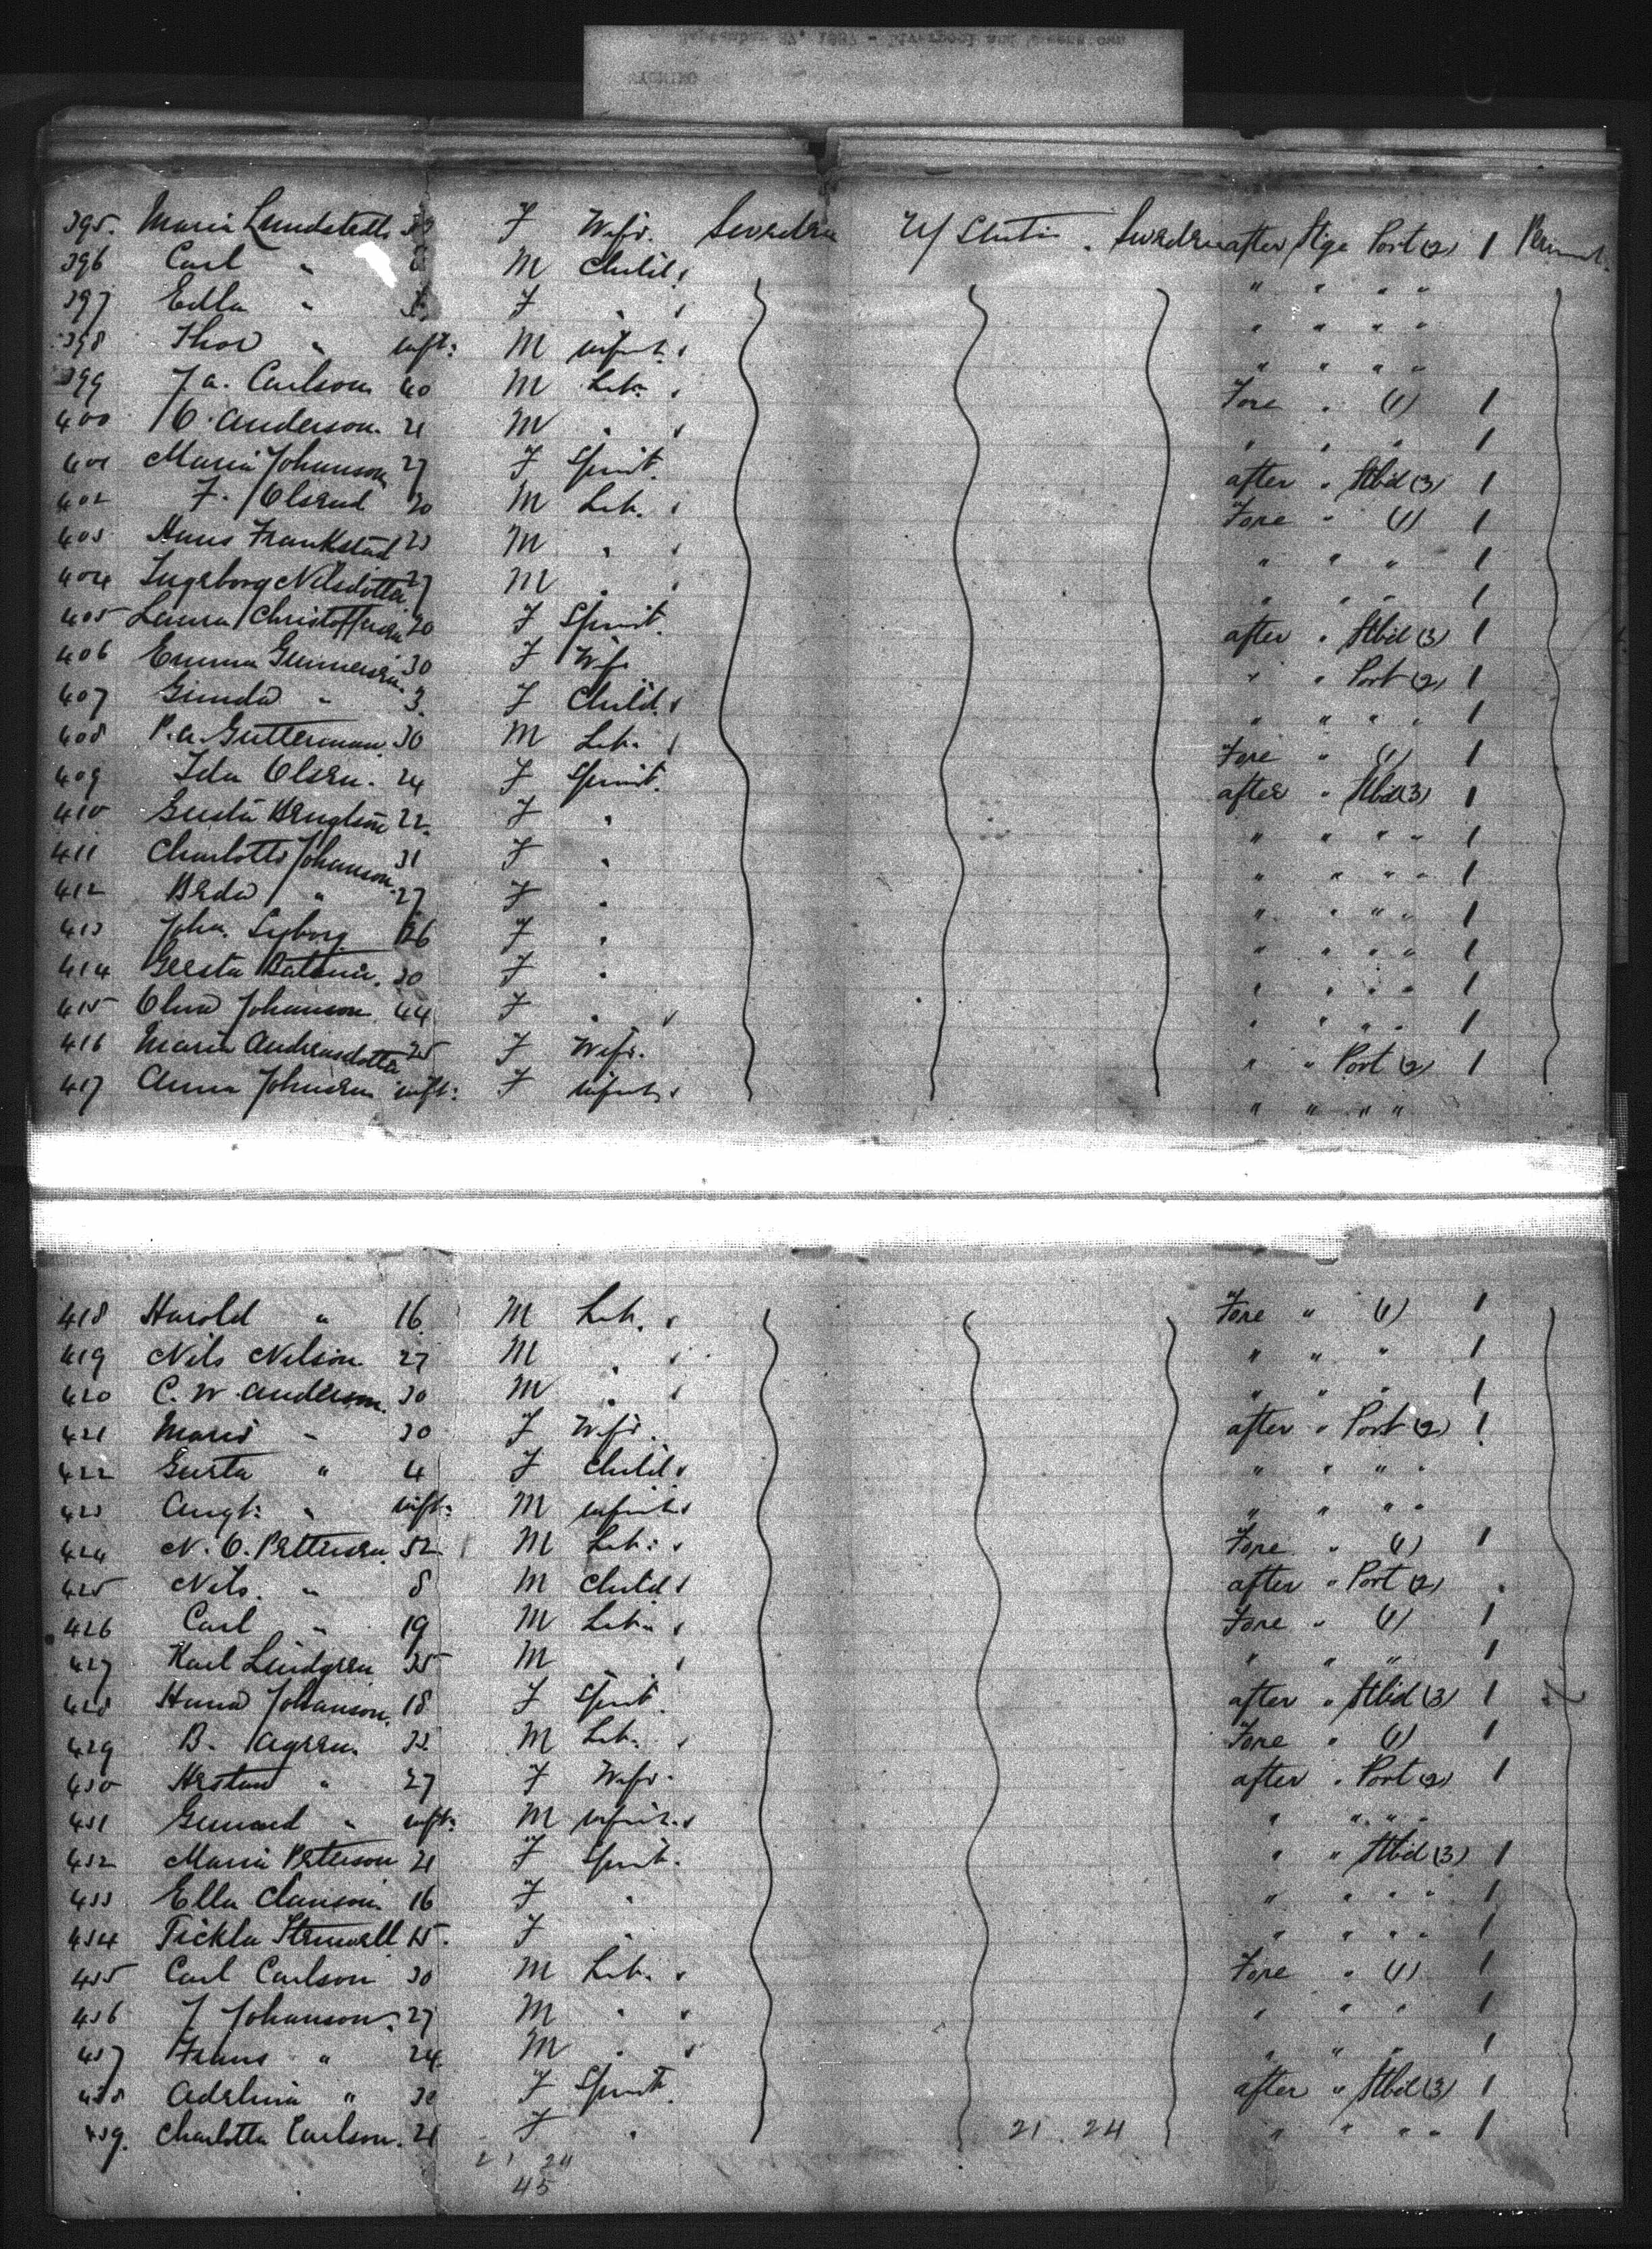 395. Maria Lundstedt F Wife. Sweden U/States. Sweden after Stge Port (2) 1
396 Carl " M Child " " " "
397 Edla " F " " " " "
398 Thor " inft: M infant " " " "
399 J. A. Carlson 40 M Lab. Fore " (1) 1
400 O. Anderson. 21 M " " " " 1
401 Maria Johanson 27 F Spinst. after " Stbd (3) 1
402 F. Olsend 20 M Lab. Fore " (1) 1
403 Hans Frankstad 23 M " " " " 1
404 Ingeborg Nilsdotter 27 M " " " " 1
405 Laura Christoffersen 20 F Spinst. after " Stbd (3) 1
406 Emma 30 F Wife " " Port (2) 1
407 Gunda " 3. F Child. " " " " 1
408 P. A. Gutterman 30 M Lab. Fore " (1) 1
409 Ida Olsen. 24 F Spinst. after " Stbd (3) 1
410 Gusta Bengtson 22. F " " " " " 1
411 Charlotte Johanson. 31 F " " " " " 1
412 Beda " 27 F " " " " " 1
413 Joha. 26 F " " " " " 1
414 Gusta 30 F " " " " " 1
415 Olava Johanson 44 F " " " " " 1
416 Maria Andreasdotter 25 F Wife. " " Port (2) 1
417 Anna Johnsen inft: F infant " " " "
418 Harold " 16 M Lab. Fore " (1) 1
419 Nils Nelson. 27 M " " " " 1
420 C. W. Anderson. 30 M " " " " 1
421 Maria " 30 F Wife. after " Port (2) 1
422 Gusta " 4 F Child " " " "
423 Augt: " inft: M infant " " " "
424 N. O. Pettersen 52 M Lab: Fore " (1) 1
425 Nils. " 8 M Child after " Port (2)
426 Carl " 19 M Lab. Fore " (1) 1
427 Karl Lindgren 35 M " " " " 1
428 Hanna Johanson. 18 F Spinst. after " Stbd (3) 1
429 B. Agren. 32 M Lab. Fore " (1) 1
430 " 27 F Wife. after " Port (2) 1
431 " inft: M infant. " " " "
432 Maria Peterson 21 F Spinst. " " Stbd (3) 1
433 Ella Clauson. 16 F " " " " " 1
434 Teckla Stenwall 15. F " " " " " 1
435 Carl Carlson 30 M Lab. Fore " (1) 1
436 J Johanson. 27 M " " " " 1
437 Frans " 24 M " " " " 1
438 Adelina " 30 F Spinst. after " Stbd (3) 1
439. Charlotta Carlson. 21 F " 21. 24 " " " " 1
21 24
45